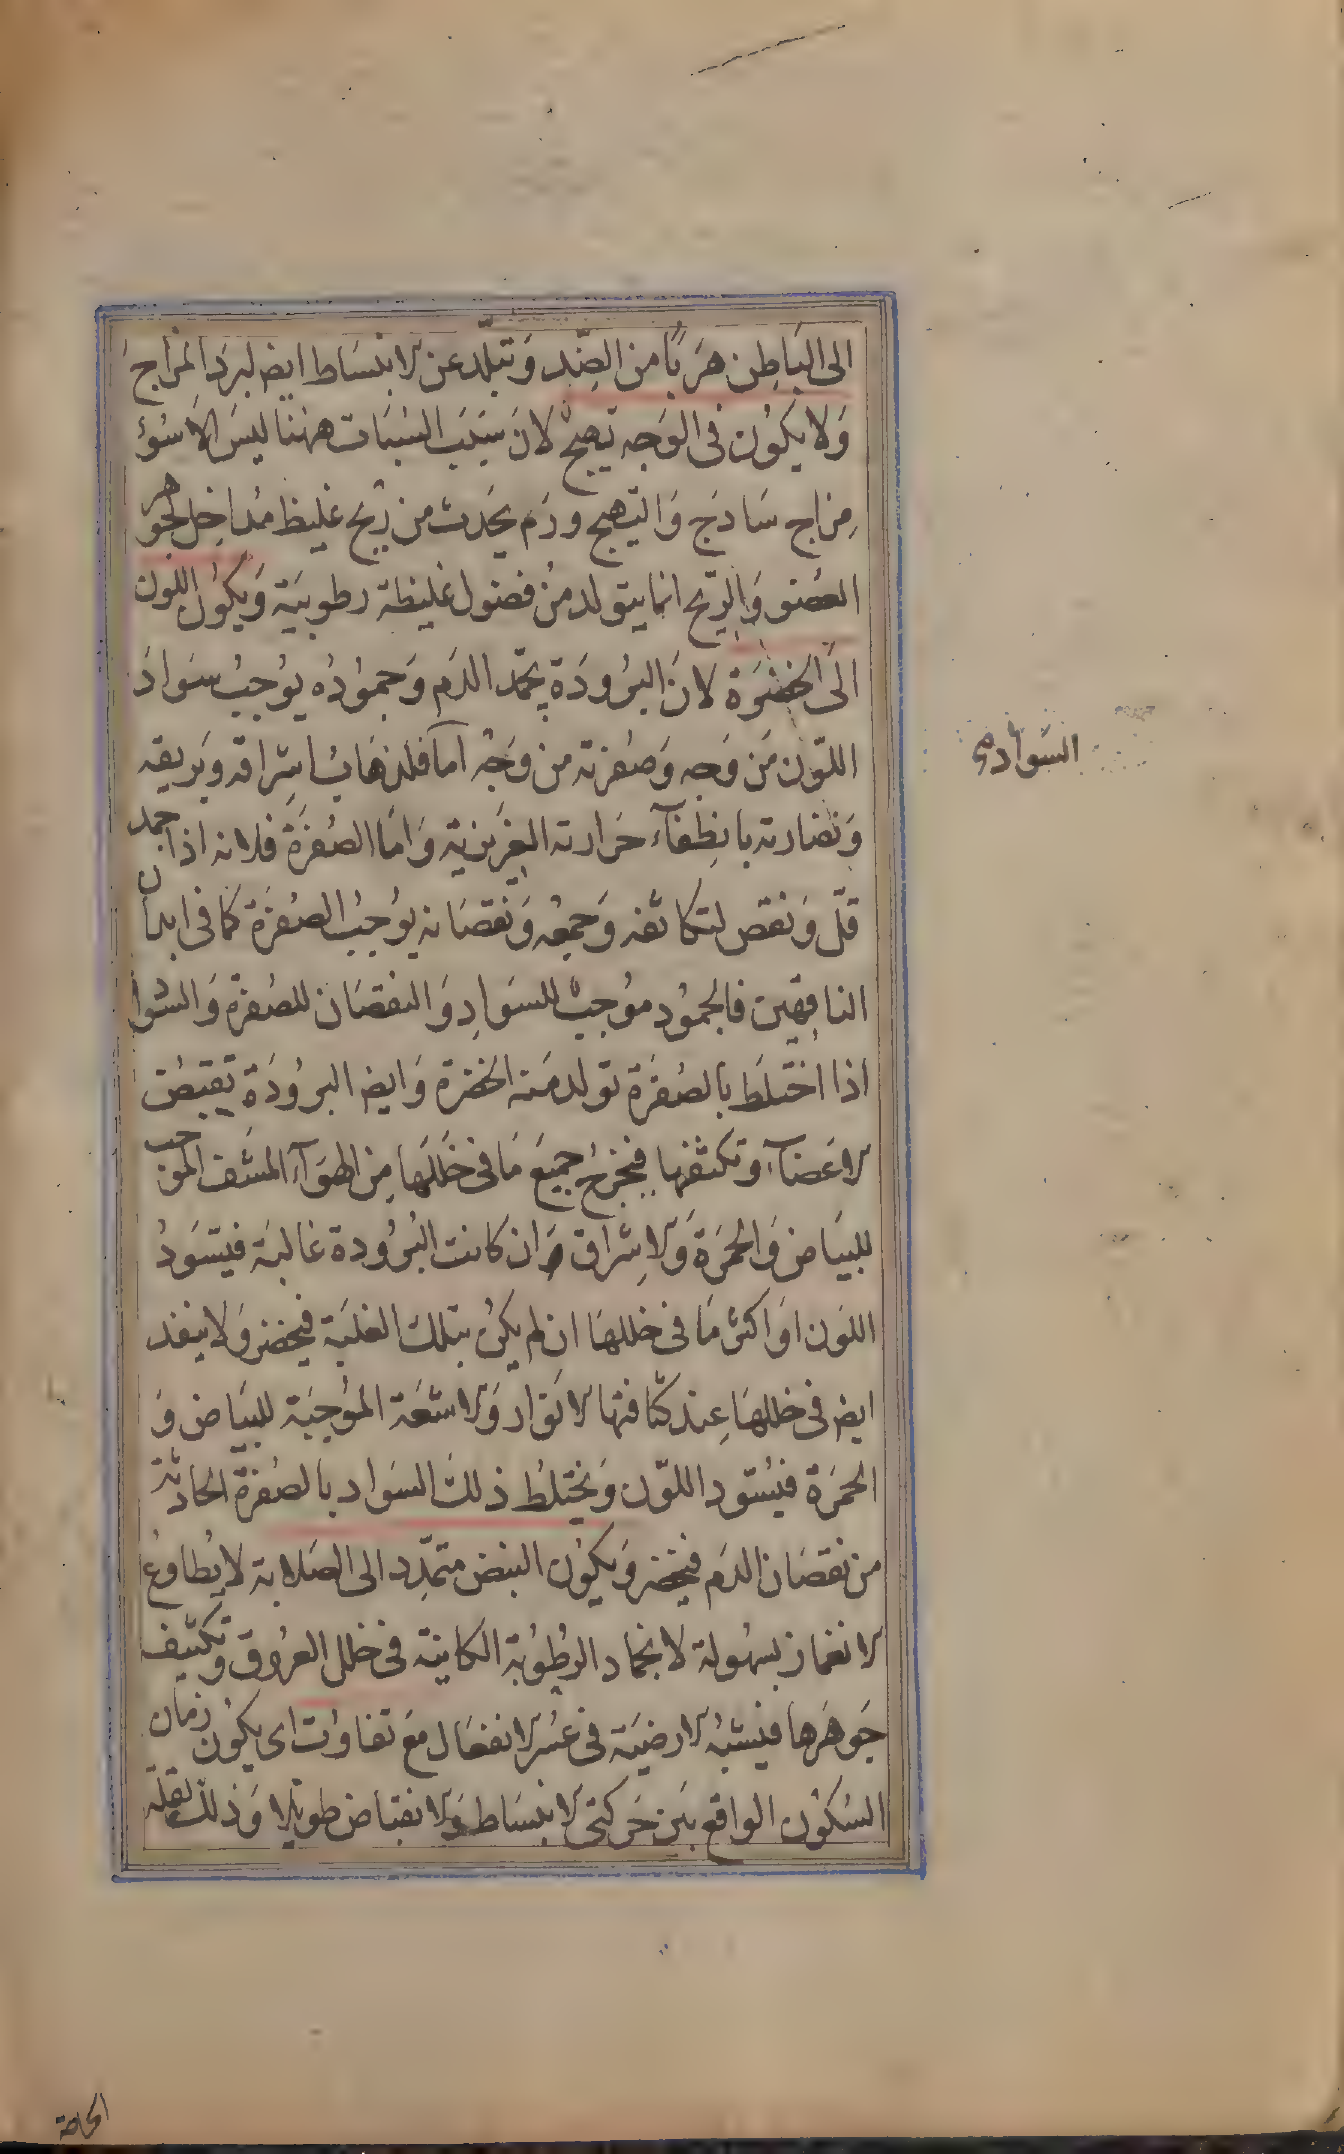 الى الباطن هربًا من الضِّد وَتبلّد عن الانبسَاط ايض لبرد المزاج
وَلا يكوُن فى الوَجه تهيجٌ لانَ سَبَب السُبَات ههنا ليسَ الا سُوء
مِزاج سَادَج وَالتهيج ورَم يحَدث من ريحٍ غليظ مُداخِل لجوهر
العُضو وَالرّيح انما يتولد منُ فضول غليظة رطوبيَة وَيكوُن اللون
الىَ الخضرَة لانَ البرُودَة يجمّد الدَم وَجموُدُه يوُجبُ سَوادَ
اللوّن مَن وَجه وَصُفرته من وَجْه اما فلذهَابُ اشِراقه وبرَيقه
وَنضارته بانطِفاَء حَرارته الغرَيزية وَامَا الصُفرَة فلانه اذا جمد
قلّ وَنقص لتكاثفه وَجمعُه وَنقصَانه يوُجبُ الصُفرَة كما فى ابدان
الناقِهين فالجمُود موُجبٌ للسَوادِ وَالنقصَان للصُفرة وَالسَواد
اذا اختلَط بالصُفرَة تولد منَه الخضرة وَايض البرُودَة تقبضُ
الاعَضآء وَتكثفها فيخرُج جميعَ مَا فى خَللَها مِن الهوَآء المشف الموجب
للبيَاض وَالحمرَة وَالاشِراق وَان كانت البُرُودة غالبَة فيَسَودُ
اللوَن اوَ اكثرَ مَا فى خللهَا ان لم يكنُ بتلك الغلبَة فيخضر وَلا ينفذ
ايض فى خللهَا عِند كثافتها الانوَار وَالاشعَة الموُجبَة للبيَاض وَ
الحمَرة فيسُود اللوّن وَيختلطُ ذلك السَواد بالصُفرَة الحادثة
من نقصَان الدَم فيخضر وَيكوُن النبض متمدِّدا الى الصَلابة لا يُطاوعُ
الانغماز بسهُولة لانجماد الرطُوبة الكاينة فى خلل العرُوق وَتكثيف
جَوهَرها فيشبهُ الارضيَة فى عسُر الانفعَال معَ تفاوُت اى يكوُن زمان
السُكوُن الواقع بيَن حَركتى الانبسَاط وَالانقباض طويلا وَذلك لقلّة
السَوادى
الحاجة